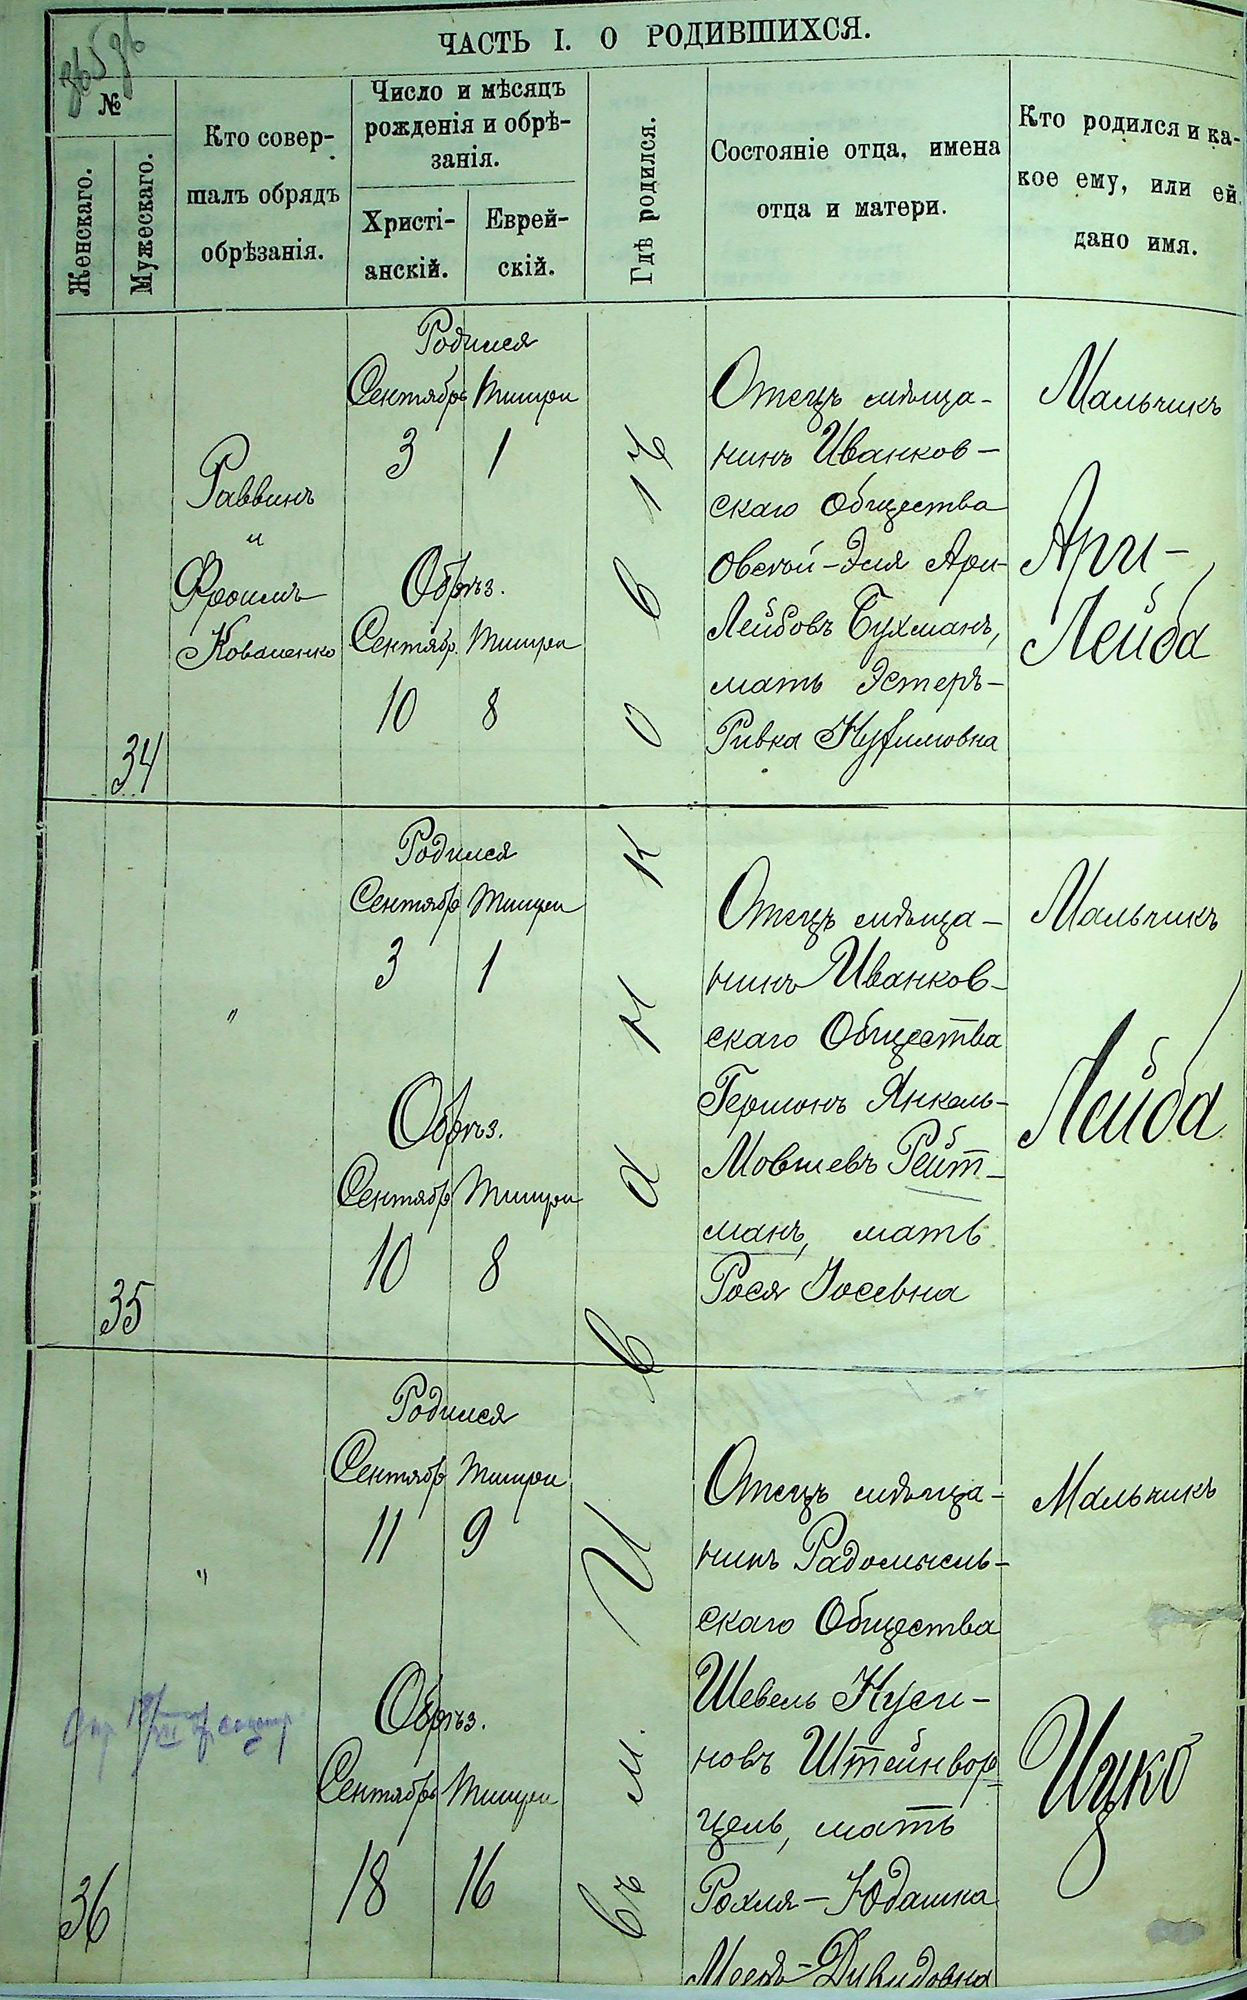 ЧАСТЬ I. О РОДИВШИХСЯ.
№
Женскаго.
Мужескаго.
Кто совер-
шалъ обрядъ
обрѣзанія.
Число и мѣсяцъ
рожденія и обрѣ-
занія.
Христі-
анскій.
Еврей-
скій.
Гдѣ родился.
Состояніе отца, имена
отца и матери.
Кто родился и ка-
кое ему, или ей
дано имя.
34
Раввинъ
и
Фроимъ
Коваленко
Родился
Сентябрь Тишри
3 1
Обрѣз.
Сентябр. Тишри
10 8
Отецъ мѣща-
нинъ Иванков-
скаго Общества
Овсѣй-Эля Ари-
Лейбовъ Бухманъ,
мать Эстеръ-
Ривка Нухимовна
Мальчикъ
Ари-
Лейба
35
"
Родился
Сентябр Тишри
3 1
Обрѣз.
Сентябр Тишри
10 8
Отецъ мѣща-
нинъ Иванков-
скаго Общества
Гершонъ Янкель-
Мовшевъ Рейт-
манъ, мать
Рося Іосевна
Мальчикъ
Лейба
36
"
Родился
Сентябр Тишри
11 9
Обрѣз.
Сентябрь Тишри
18 16
Отецъ мѣща-
нинъ Радомысль-
скаго Общества
Шевель Нуси-
новъ Штейнвор-
цель, мать
Рохля-Юдашка
Дувидовна
Мальчикъ
Ицко
въ м. Иванковѣ